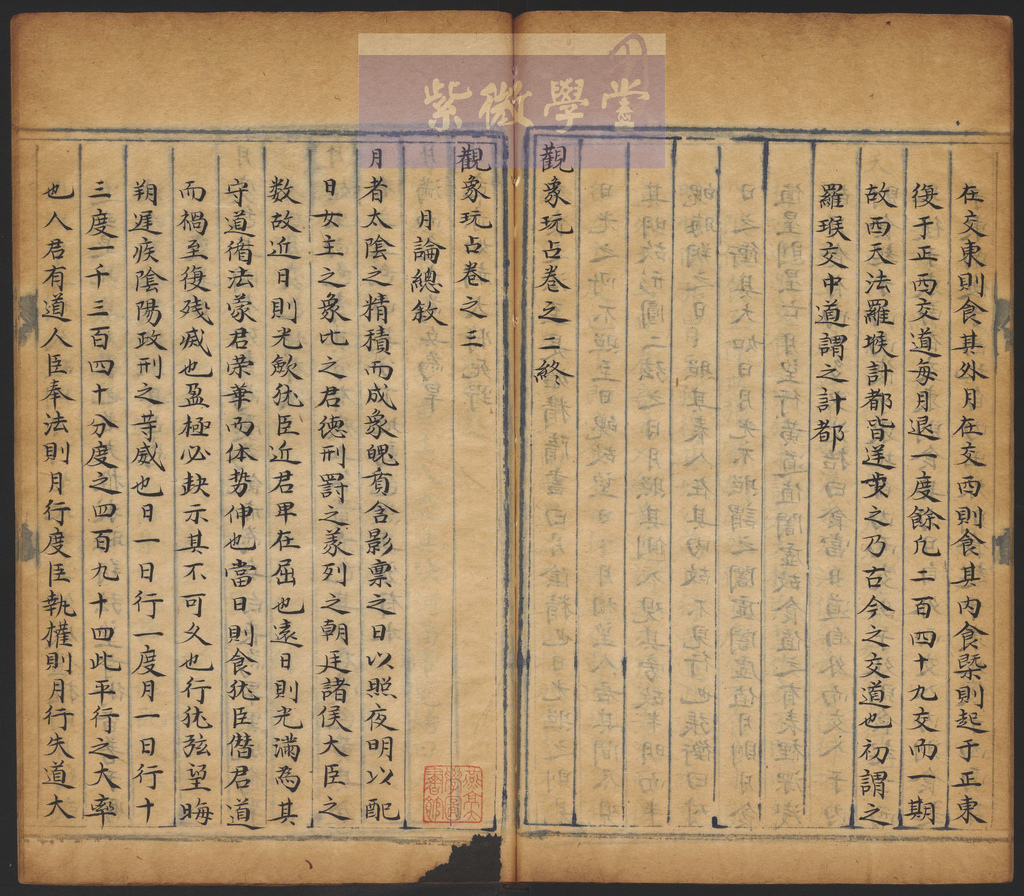 紫微學堂
在交東則食其外月在交西則食其内食旣則起于正東
復于正西交道每月退一度餘凢二百四十九交而一期
故西天法羅㬋計都皆逆求之乃古今之交道也初謂之
羅㬋交中道謂之計都
觀象玩占卷之二終
觀象玩占卷之三
月論總敘
月者太陰之精積而成象魄質含影稟之日以照夜明以配
日女主之象比之君德刑罰之義列之朝廷諸侯大臣之
數故近日則光歛犹臣近君卑在屈也遠日則光滿為其
守道循法蒙君荣華而体势伸也當日則食犹臣僭君道
而禍至復残滅也盈極必缺示其不可久也行犹弦望晦
朔遲疾陰陽政刑之等威也日一日行一度月一日行十
三度一千三百四十分度之四百九十四此平行之大率
也人君有道人臣奉法則月行度臣執權則月行失道大